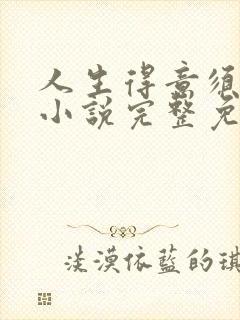 人生得意須
小說完整免
淡漠依藍的琪